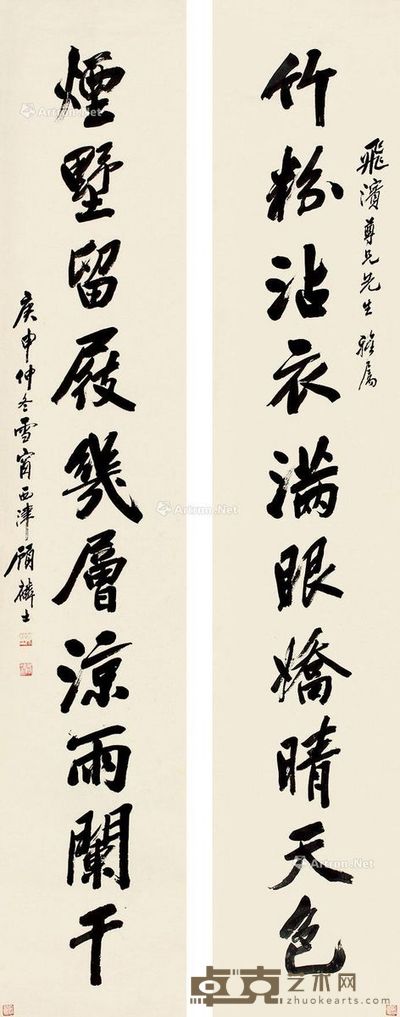 飛濱尊兄先生雅屬
竹粉沾衣滿眼嬌晴天色
煙墅留屐幾層涼雨闌干
庚申仲冬雪窗西津顧麟士
Artron.Net
Artron.Net
Artron.Net
Artron.Net
卓克艺术网
zhuokearts.com